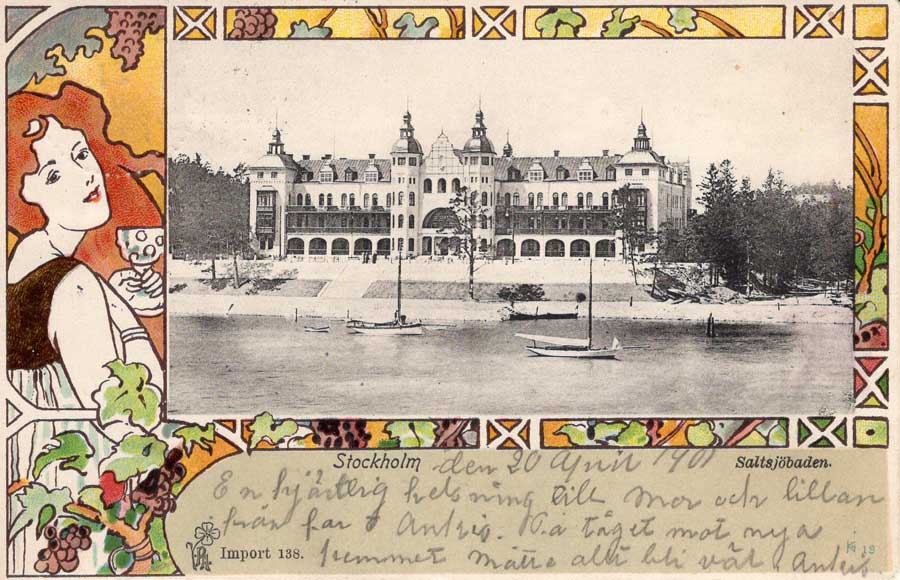 Stockholm den 20 April 1901
Saltsjöbaden.
En hjärtlig helsning till Mor och lillan
från far o
På tåget mot nya
hemmet måtte allt bli väl.
Import 138.
19